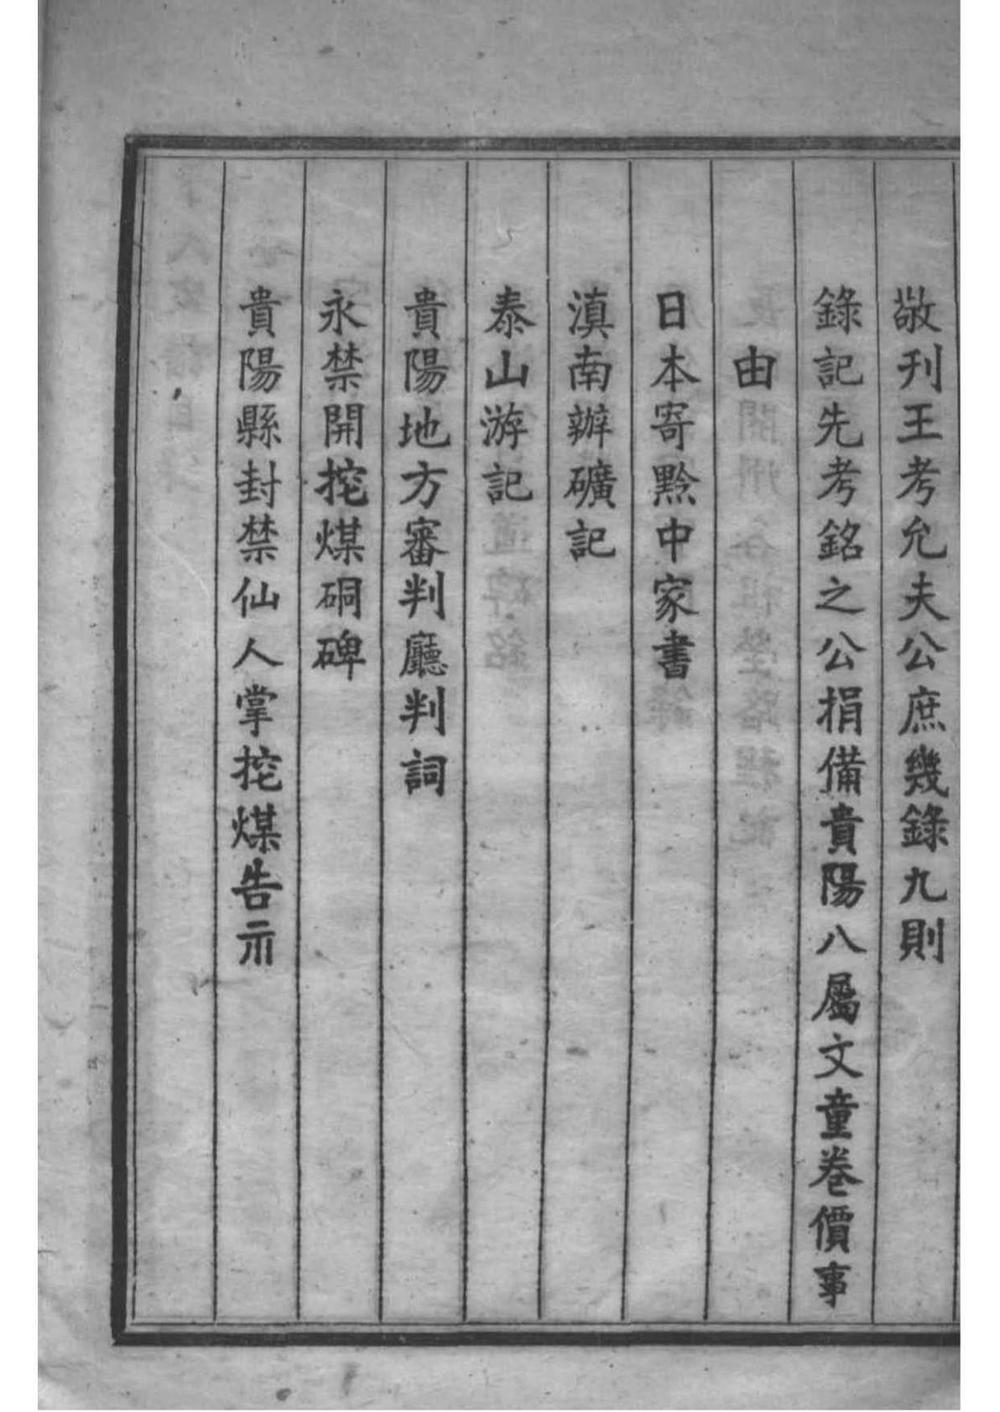 敬刊王考允夫公庶幾錄九則
錄記先考銘之公捐備貴陽八屬文童卷價事
由
日本寄黔中家書
滇南辦礦記
泰山游記
貴陽地方審判廳判詞
永禁開挖煤硐碑
貴陽縣封禁仙人掌挖煤告示